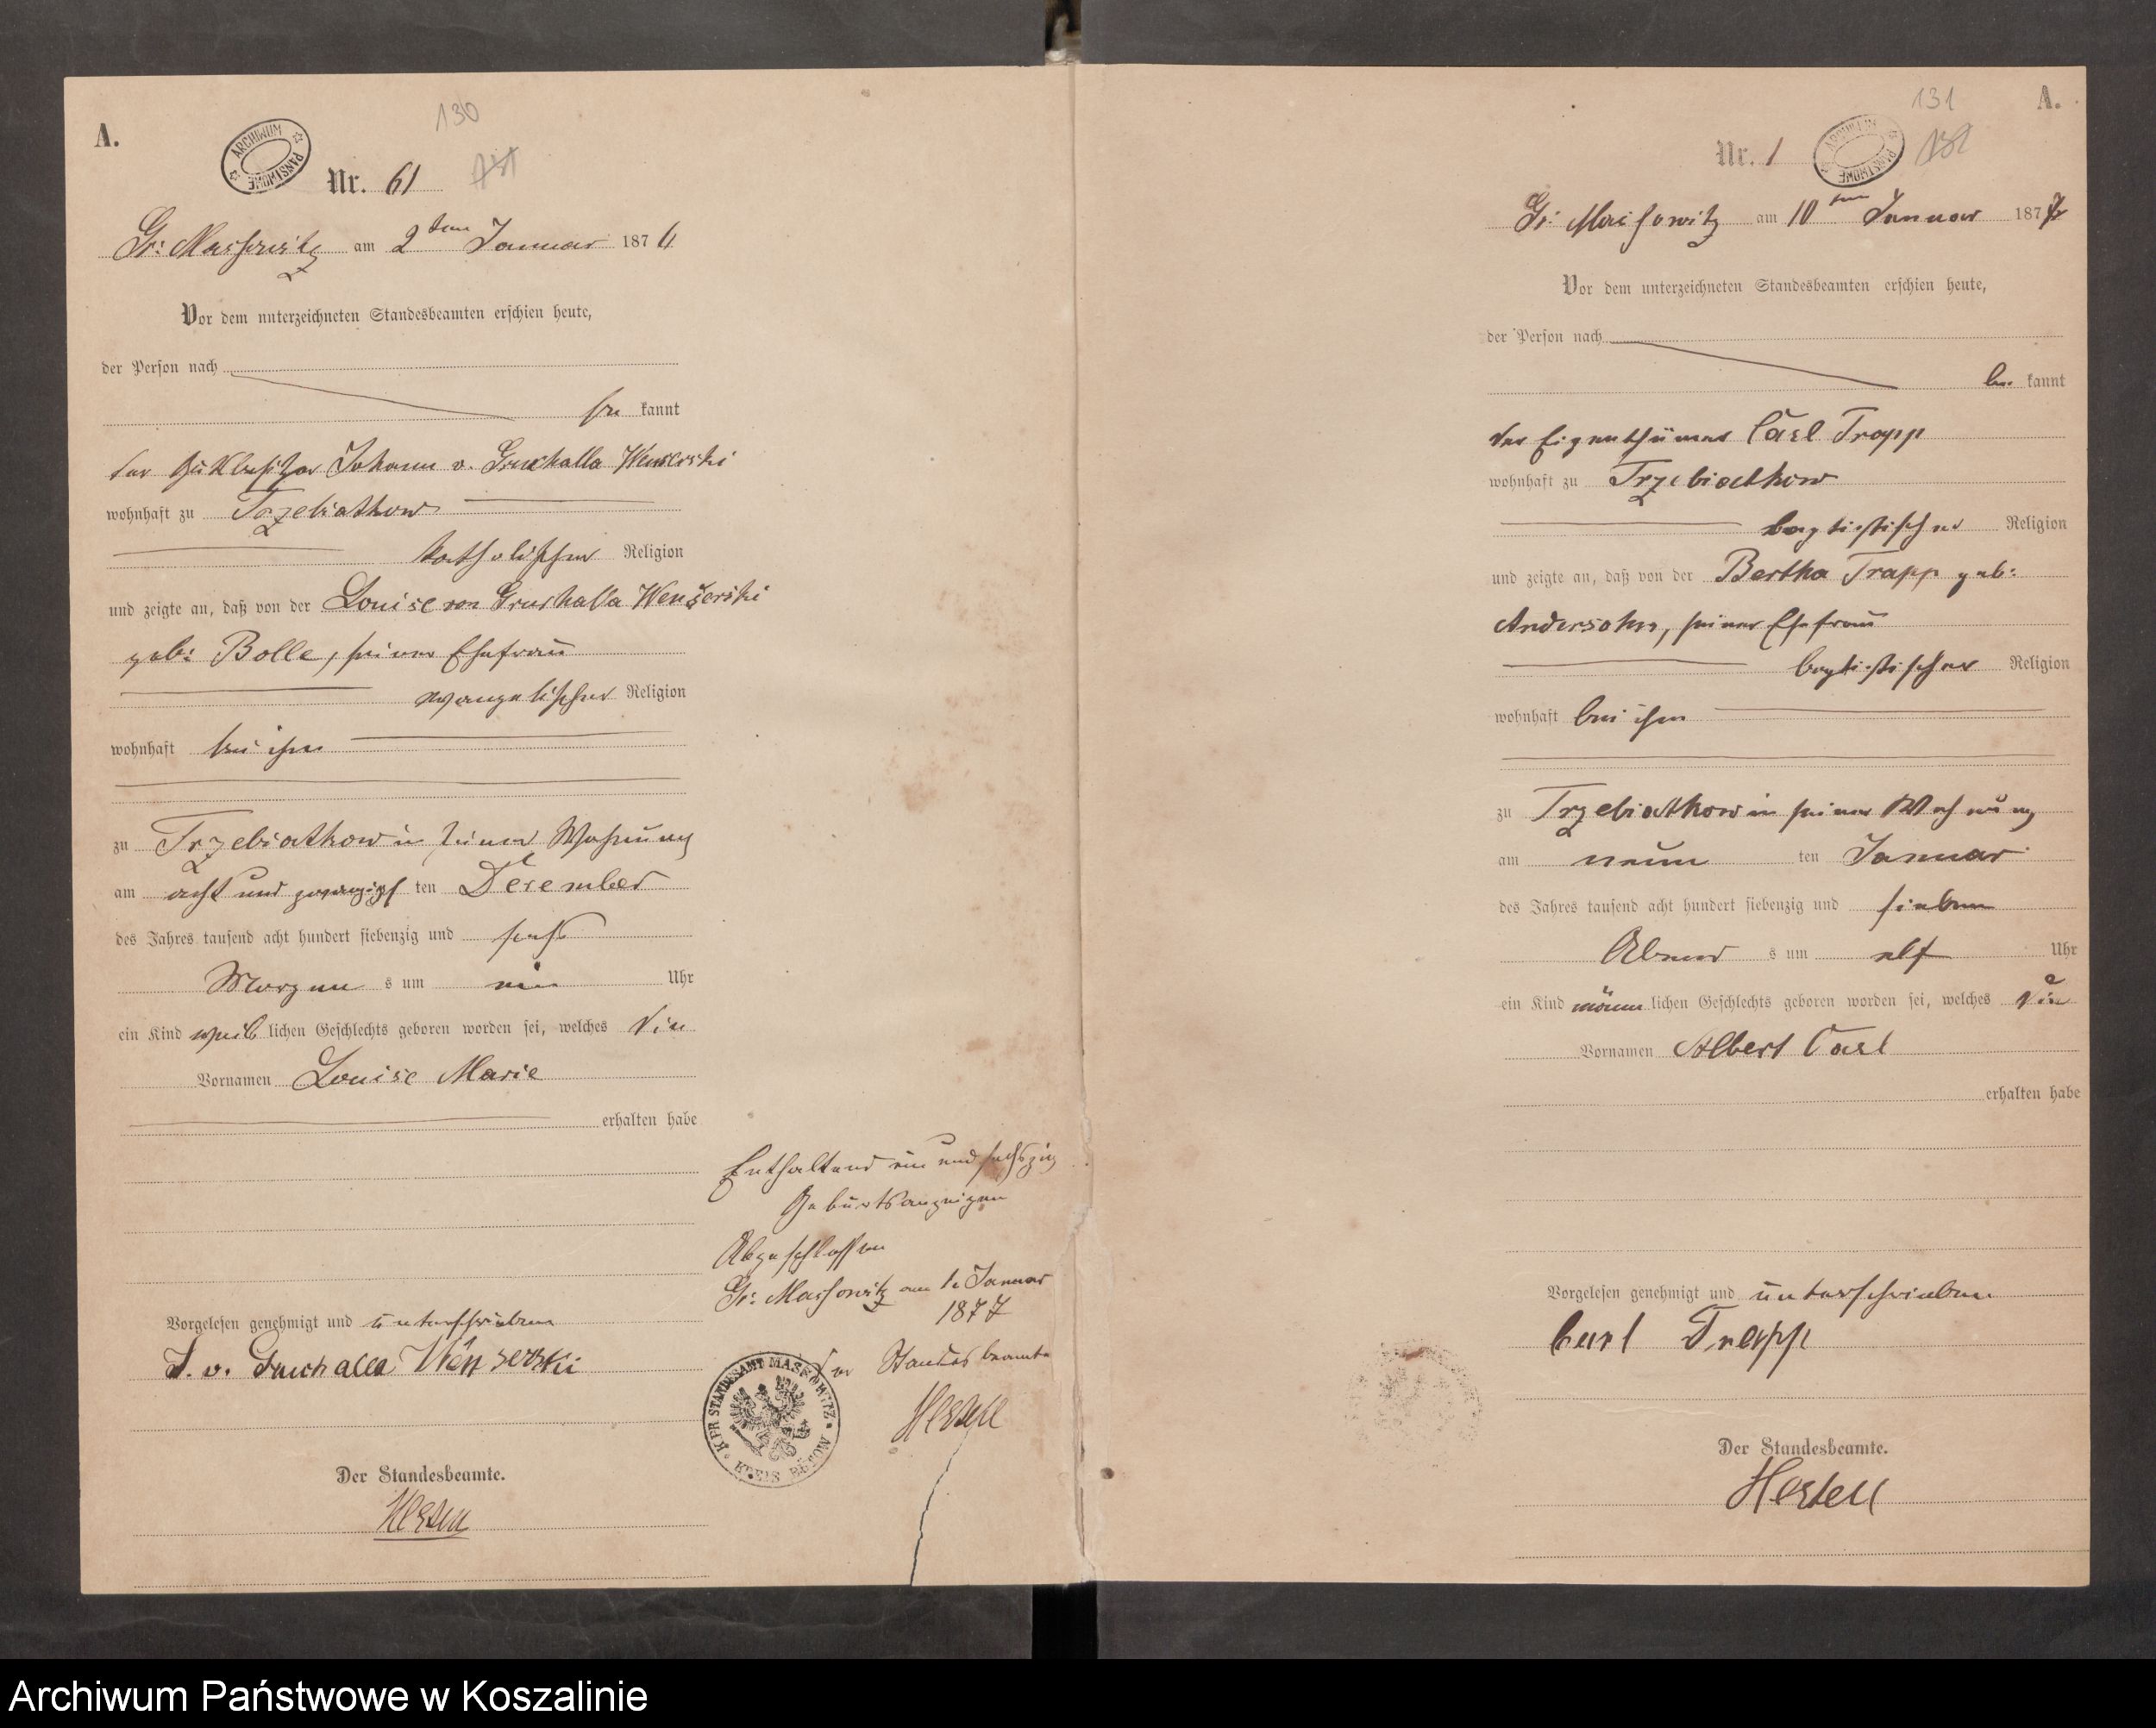 A.
130
ARCHIWUM PAŃSTWOWE
Nr. 61
Gr: Massowitz am 2ten Januar 1876
Vor dem unterzeichneten Standesbeamten erschien heute,
der Person nach
be kannt
der Gutsbesitzer Johann v. Gruchalla Wensierski
wohnhaft zu Trzebiatkow
katholischer Religion
und zeigte an, daß von der Louise von Gruchalla Wensierski
geb: Bolle, seiner Ehefrau
evangelischer Religion
wohnhaft bei ihm
zu Trzebiatkow in seiner Wohnung
am acht und zwanzigsten Dezember
des Jahres tausend acht hundert siebenzig und sechs
Morgen s um ein Uhr
ein Kind weib lichen Geschlechts geboren worden sei, welches die
Vornamen Louise Marie
erhalten habe
Vorgelesen genehmigt und unterschrieben
J. v. Gruchalla Wenserski
Der Standesbeamte.
Hertell
Enthaltend ein und sechszig
Geburtsanzeigen
Abgeschlossen
Gr: Massowitz am 1. Januar
1877
Der Standesbeamte
Hertell
KPR STANDESAMT MASSOWITZ
KREIS BÜTOW
131
A.
Nr. 1
ARCHIWUM PAŃSTWOWE
Gr: Massowitz am 10ten Januar 1877
Vor dem unterzeichneten Standesbeamten erschien heute,
der Person nach
be kannt
der Eigenthümer Carl Trapp
wohnhaft zu Trzebiatkow
baptistischer Religion
und zeigte an, daß von der Bertha Trapp geb:
Andersohn, seiner Ehefrau
baptistischer Religion
wohnhaft bei ihm
zu Trzebiatkow in seiner Wohnung
am neun ten Januar
des Jahres tausend acht hundert siebenzig und sieben
Abend s um elf Uhr
ein Kind männ lichen Geschlechts geboren worden sei, welches die
Vornamen Albert Carl
erhalten habe
Vorgelesen genehmigt und unterschrieben
Carl Trapp
Der Standesbeamte.
Hertell
Archiwum Państwowe w Koszalinie